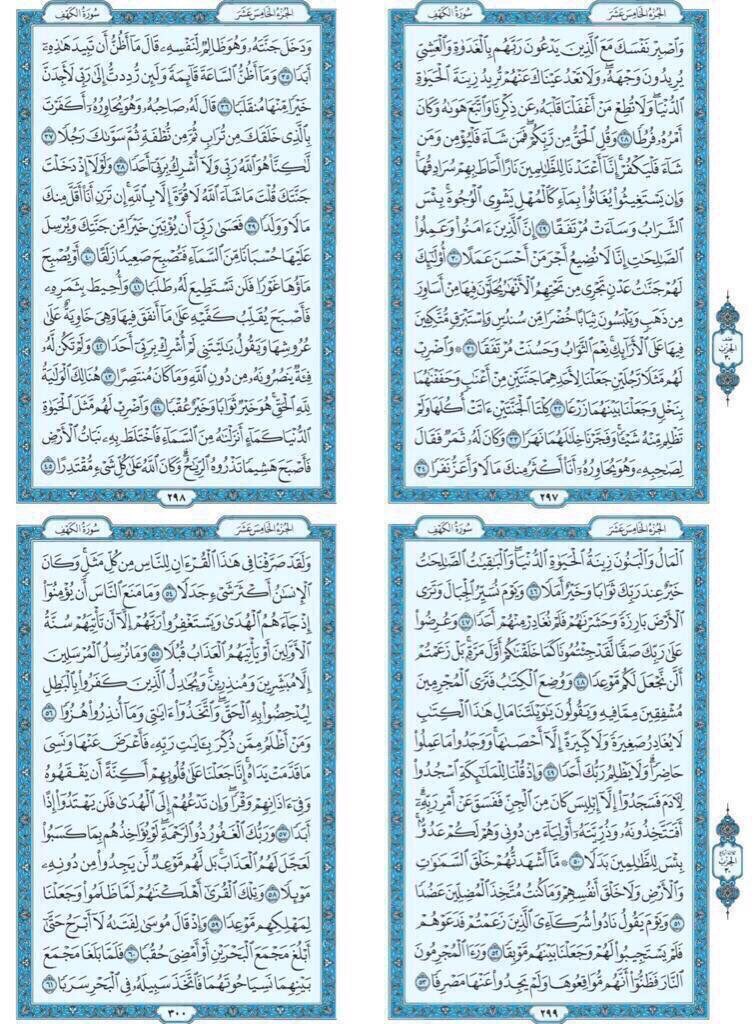 سُورَةُ الكَهۡفِ
الجُزءُ الخَامِسَ عَشَرَ
وَٱصۡبِرۡ نَفۡسَكَ مَعَ ٱلَّذِينَ يَدۡعُونَ رَبَّهُم بِٱلۡغَدَوٰةِ وَٱلۡعَشِيِّ
يُرِيدُونَ وَجۡهَهُۥۖ وَلَا تَعۡدُ عَيۡنَاكَ عَنۡهُمۡ تُرِيدُ زِينَةَ ٱلۡحَيَوٰةِ
ٱلدُّنۡيَاۖ وَلَا تُطِعۡ مَنۡ أَغۡفَلۡنَا قَلۡبَهُۥ عَن ذِكۡرِنَا وَٱتَّبَعَ هَوَىٰهُ وَكَانَ
أَمۡرُهُۥ فُرُطٗا ٢٨ وَقُلِ ٱلۡحَقُّ مِن رَّبِّكُمۡۖ فَمَن شَآءَ فَلۡيُؤۡمِن وَمَن
شَآءَ فَلۡيَكۡفُرۡۚ إِنَّآ أَعۡتَدۡنَا لِلظَّٰلِمِينَ نَارًا أَحَاطَ بِهِمۡ سُرَادِقُهَاۚ
وَإِن يَسۡتَغِيثُواْ يُغَاثُواْ بِمَآءٖ كَٱلۡمُهۡلِ يَشۡوِي ٱلۡوُجُوهَۚ بِئۡسَ
ٱلشَّرَابُ وَسَآءَتۡ مُرۡتَفَقًا ٢٩ إِنَّ ٱلَّذِينَ ءَامَنُواْ وَعَمِلُواْ
ٱلصَّٰلِحَٰتِ إِنَّا لَا نُضِيعُ أَجۡرَ مَنۡ أَحۡسَنَ عَمَلًا ٣٠ أُوْلَٰٓئِكَ
لَهُمۡ جَنَّٰتُ عَدۡنٖ تَجۡرِي مِن تَحۡتِهِمُ ٱلۡأَنۡهَٰرُ يُحَلَّوۡنَ فِيهَا مِنۡ أَسَاوِرَ
مِن ذَهَبٖ وَيَلۡبَسُونَ ثِيَابًا خُضۡرٗا مِّن سُندُسٖ وَإِسۡتَبۡرَقٖ مُّتَّكِـِٔينَ
فِيهَا عَلَى ٱلۡأَرَآئِكِۚ نِعۡمَ ٱلثَّوَابُ وَحَسُنَتۡ مُرۡتَفَقٗا ٣١ ۞ وَٱضۡرِبۡ
لَهُم مَّثَلٗا رَّجُلَيۡنِ جَعَلۡنَا لِأَحَدِهِمَا جَنَّتَيۡنِ مِنۡ أَعۡنَٰبٖ وَحَفَفۡنَٰهُمَا
بِنَخۡلٖ وَجَعَلۡنَا بَيۡنَهُمَا زَرۡعٗا ٣٢ كِلۡتَا ٱلۡجَنَّتَيۡنِ ءَاتَتۡ أُكُلَهَا وَلَمۡ
تَظۡلِم مِّنۡهُ شَيۡـٔٗاۚ وَفَجَّرۡنَا خِلَٰلَهُمَا نَهَرٗا ٣٣ وَكَانَ لَهُۥ ثَمَرٞ فَقَالَ
لِصَٰحِبِهِۦ وَهُوَ يُحَاوِرُهُۥٓ أَنَا۠ أَكۡثَرُ مِنكَ مَالٗا وَأَعَزُّ نَفَرٗا ٣٤
٢٩٧
سُورَةُ الكَهۡفِ
الجُزءُ الخَامِسَ عَشَرَ
وَدَخَلَ جَنَّتَهُۥ وَهُوَ ظَالِمٞ لِّنَفۡسِهِۦ قَالَ مَآ أَظُنُّ أَن تَبِيدَ هَٰذِهِۦٓ
أَبَدٗا ٣٥ وَمَآ أَظُنُّ ٱلسَّاعَةَ قَآئِمَةٗ وَلَئِن رُّدِدتُّ إِلَىٰ رَبِّي لَأَجِدَنَّ
خَيۡرٗا مِّنۡهَا مُنقَلَبٗا ٣٦ قَالَ لَهُۥ صَاحِبُهُۥ وَهُوَ يُحَاوِرُهُۥٓ أَكَفَرۡتَ
بِٱلَّذِي خَلَقَكَ مِن تُرَابٖ ثُمَّ مِن نُّطۡفَةٖ ثُمَّ سَوَّىٰكَ رَجُلٗا ٣٧
لَّٰكِنَّا۠ هُوَ ٱللَّهُ رَبِّي وَلَآ أُشۡرِكُ بِرَبِّيٓ أَحَدٗا ٣٨ وَلَوۡلَآ إِذۡ دَخَلۡتَ
جَنَّتَكَ قُلۡتَ مَا شَآءَ ٱللَّهُ لَا قُوَّةَ إِلَّا بِٱللَّهِۚ إِن تَرَنِ أَنَا۠ أَقَلَّ مِنكَ
مَالٗا وَوَلَدٗا ٣٩ فَعَسَىٰ رَبِّيٓ أَن يُؤۡتِيَنِ خَيۡرٗا مِّن جَنَّتِكَ وَيُرۡسِلَ
عَلَيۡهَا حُسۡبَانٗا مِّنَ ٱلسَّمَآءِ فَتُصۡبِحَ صَعِيدٗا زَلَقًا ٤٠ أَوۡ يُصۡبِحَ
مَآؤُهَا غَوۡرٗا فَلَن تَسۡتَطِيعَ لَهُۥ طَلَبٗا ٤١ وَأُحِيطَ بِثَمَرِهِۦ
فَأَصۡبَحَ يُقَلِّبُ كَفَّيۡهِ عَلَىٰ مَآ أَنفَقَ فِيهَا وَهِيَ خَاوِيَةٌ عَلَىٰ
عُرُوشِهَا وَيَقُولُ يَٰلَيۡتَنِي لَمۡ أُشۡرِكۡ بِرَبِّيٓ أَحَدٗا ٤٢ وَلَمۡ تَكُن لَّهُۥ
فِئَةٞ يَنصُرُونَهُۥ مِن دُونِ ٱللَّهِ وَمَا كَانَ مُنتَصِرًا ٤٣ هُنَالِكَ ٱلۡوَلَٰيَةُ
لِلَّهِ ٱلۡحَقِّۚ هُوَ خَيۡرٞ ثَوَابٗا وَخَيۡرٌ عُقۡبٗا ٤٤ وَٱضۡرِبۡ لَهُم مَّثَلَ ٱلۡحَيَوٰةِ
ٱلدُّنۡيَا كَمَآءٍ أَنزَلۡنَٰهُ مِنَ ٱلسَّمَآءِ فَٱخۡتَلَطَ بِهِۦ نَبَاتُ ٱلۡأَرۡضِ
فَأَصۡبَحَ هَشِيمٗا تَذۡرُوهُ ٱلرِّيَٰحُۗ وَكَانَ ٱللَّهُ عَلَىٰ كُلِّ شَيۡءٖ مُّقۡتَدِرًا ٤٥
٢٩٨
سُورَةُ الكَهۡفِ
الجُزءُ الخَامِسَ عَشَرَ
ٱلۡمَالُ وَٱلۡبَنُونَ زِينَةُ ٱلۡحَيَوٰةِ ٱلدُّنۡيَاۖ وَٱلۡبَٰقِيَٰتُ ٱلصَّٰلِحَٰتُ
خَيۡرٌ عِندَ رَبِّكَ ثَوَابٗا وَخَيۡرٌ أَمَلٗا ٤٦ وَيَوۡمَ نُسَيِّرُ ٱلۡجِبَالَ وَتَرَى
ٱلۡأَرۡضَ بَارِزَةٗ وَحَشَرۡنَٰهُمۡ فَلَمۡ نُغَادِرۡ مِنۡهُمۡ أَحَدٗا ٤٧ وَعُرِضُواْ
عَلَىٰ رَبِّكَ صَفّٗا لَّقَدۡ جِئۡتُمُونَا كَمَا خَلَقۡنَٰكُمۡ أَوَّلَ مَرَّةِۭۚ بَلۡ زَعَمۡتُمۡ
أَلَّن نَّجۡعَلَ لَكُم مَّوۡعِدٗا ٤٨ وَوُضِعَ ٱلۡكِتَٰبُ فَتَرَى ٱلۡمُجۡرِمِينَ
مُشۡفِقِينَ مِمَّا فِيهِ وَيَقُولُونَ يَٰوَيۡلَتَنَا مَالِ هَٰذَا ٱلۡكِتَٰبِ
لَا يُغَادِرُ صَغِيرَةٗ وَلَا كَبِيرَةً إِلَّآ أَحۡصَىٰهَاۚ وَوَجَدُواْ مَا عَمِلُواْ
حَاضِرٗاۗ وَلَا يَظۡلِمُ رَبُّكَ أَحَدٗا ٤٩ وَإِذۡ قُلۡنَا لِلۡمَلَٰٓئِكَةِ ٱسۡجُدُواْ
لِأٓدَمَ فَسَجَدُوٓاْ إِلَّآ إِبۡلِيسَ كَانَ مِنَ ٱلۡجِنِّ فَفَسَقَ عَنۡ أَمۡرِ رَبِّهِۦٓۗ
أَفَتَتَّخِذُونَهُۥ وَذُرِّيَّتَهُۥٓ أَوۡلِيَآءَ مِن دُونِي وَهُمۡ لَكُمۡ عَدُوُّۢۚ
بِئۡسَ لِلظَّٰلِمِينَ بَدَلٗا ٥٠ ۞ مَّآ أَشۡهَدتُّهُمۡ خَلۡقَ ٱلسَّمَٰوَٰتِ
وَٱلۡأَرۡضِ وَلَا خَلۡقَ أَنفُسِهِمۡ وَمَا كُنتُ مُتَّخِذَ ٱلۡمُضِلِّينَ عَضُدٗا
٥١ وَيَوۡمَ يَقُولُ نَادُواْ شُرَكَآءِيَ ٱلَّذِينَ زَعَمۡتُمۡ فَدَعَوۡهُمۡ
فَلَمۡ يَسۡتَجِيبُواْ لَهُمۡ وَجَعَلۡنَا بَيۡنَهُم مَّوۡبِقٗا ٥٢ وَرَءَا ٱلۡمُجۡرِمُونَ
ٱلنَّارَ فَظَنُّوٓاْ أَنَّهُم مُّوَاقِعُوهَا وَلَمۡ يَجِدُواْ عَنۡهَا مَصۡرِفٗا ٥٣
٢٩٩
سُورَةُ الكَهۡفِ
الجُزءُ الخَامِسَ عَشَرَ
وَلَقَدۡ صَرَّفۡنَا فِي هَٰذَا ٱلۡقُرۡءَانِ لِلنَّاسِ مِن كُلِّ مَثَلٖۚ وَكَانَ
ٱلۡإِنسَٰنُ أَكۡثَرَ شَيۡءٖ جَدَلٗا ٥٤ وَمَا مَنَعَ ٱلنَّاسَ أَن يُؤۡمِنُوٓاْ
إِذۡ جَآءَهُمُ ٱلۡهُدَىٰ وَيَسۡتَغۡفِرُواْ رَبَّهُمۡ إِلَّآ أَن تَأۡتِيَهُمۡ سُنَّةُ
ٱلۡأَوَّلِينَ أَوۡ يَأۡتِيَهُمُ ٱلۡعَذَابُ قُبُلٗا ٥٥ وَمَا نُرۡسِلُ ٱلۡمُرۡسَلِينَ
إِلَّا مُبَشِّرِينَ وَمُنذِرِينَۚ وَيُجَٰدِلُ ٱلَّذِينَ كَفَرُواْ بِٱلۡبَٰطِلِ
لِيُدۡحِضُواْ بِهِ ٱلۡحَقَّۖ وَٱتَّخَذُوٓاْ ءَايَٰتِي وَمَآ أُنذِرُواْ هُزُوٗا ٥٦
وَمَنۡ أَظۡلَمُ مِمَّن ذُكِّرَ بِـَٔايَٰتِ رَبِّهِۦ فَأَعۡرَضَ عَنۡهَا وَنَسِيَ
مَا قَدَّمَتۡ يَدَاهُۚ إِنَّا جَعَلۡنَا عَلَىٰ قُلُوبِهِمۡ أَكِنَّةً أَن يَفۡقَهُوهُ
وَفِيٓ ءَاذَانِهِمۡ وَقۡرٗاۖ وَإِن تَدۡعُهُمۡ إِلَى ٱلۡهُدَىٰ فَلَن يَهۡتَدُوٓاْ إِذًا
أَبَدٗا ٥٧ وَرَبُّكَ ٱلۡغَفُورُ ذُو ٱلرَّحۡمَةِۖ لَوۡ يُؤَاخِذُهُم بِمَا كَسَبُواْ
لَعَجَّلَ لَهُمُ ٱلۡعَذَابَۚ بَل لَّهُم مَّوۡعِدٞ لَّن يَجِدُواْ مِن دُونِهِۦ
مَوۡئِلٗا ٥٨ وَتِلۡكَ ٱلۡقُرَىٰٓ أَهۡلَكۡنَٰهُمۡ لَمَّا ظَلَمُواْ وَجَعَلۡنَا
لِمَهۡلِكِهِم مَّوۡعِدٗا ٥٩ وَإِذۡ قَالَ مُوسَىٰ لِفَتَىٰهُ لَآ أَبۡرَحُ حَتَّىٰٓ
أَبۡلُغَ مَجۡمَعَ ٱلۡبَحۡرَيۡنِ أَوۡ أَمۡضِيَ حُقُبٗا ٦٠ فَلَمَّا بَلَغَا مَجۡمَعَ
بَيۡنِهِمَا نَسِيَا حُوتَهُمَا فَٱتَّخَذَ سَبِيلَهُۥ فِي ٱلۡبَحۡرِ سَرَبٗا ٦١
٣٠٠